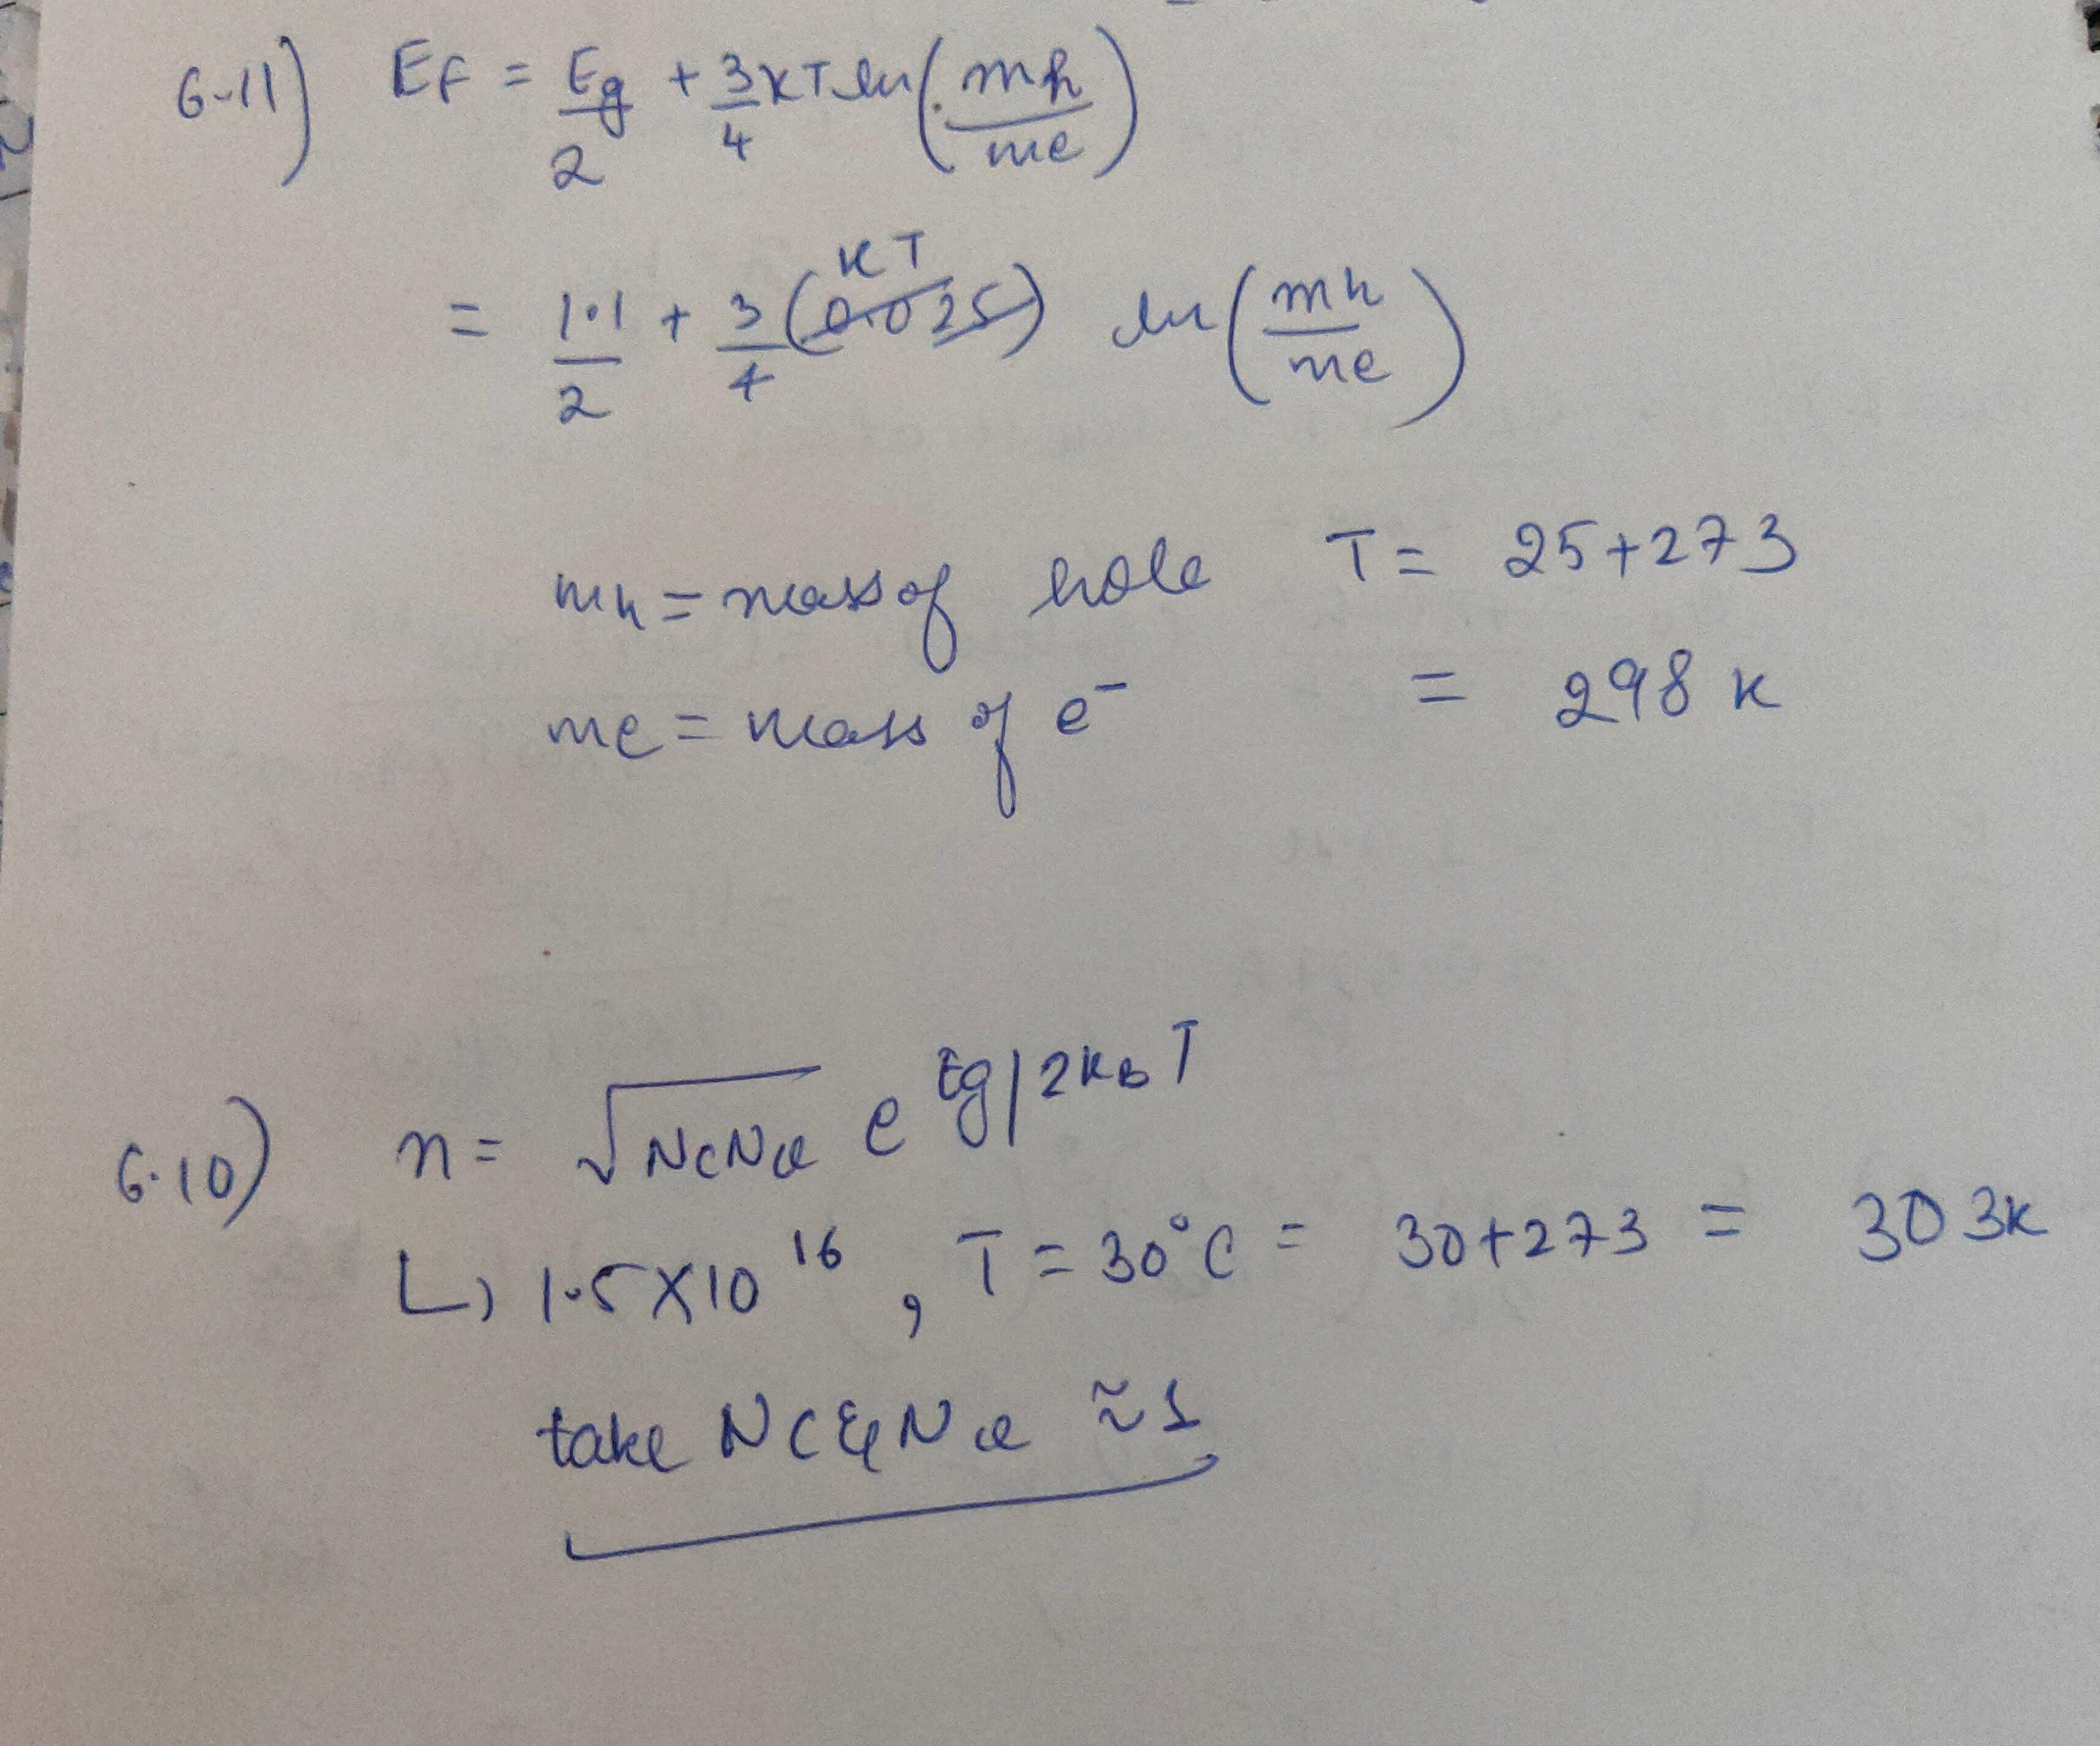 6.11) EF = Eg/2 + 3/4 KT ln(mh/me)
= 1.1/2 + 3/4 (0.025) KT ln(mh/me)
mh = mass of hole T = 25+273
me = mass of e⁻ = 298 K
6.10) n = √NcNv e^Eg/2KBT
↳ 1.5×10^16, T = 30°C = 30+273 = 303K
take Nc & Nv ≈ 1